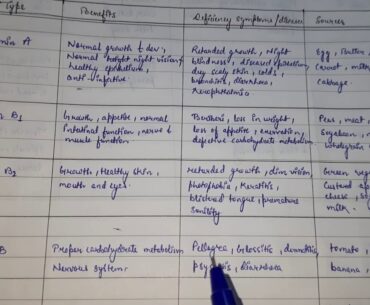 Type Benefits Deficiency Symptoms/diseases Sources
min A Normal growth & dev, Retarded growth, Night Egg, Butter,
Normal night vision, blindness, diseased epithelium, Carrot, milk
healthy epithelium, dry scaly skin, colds, Cabbage
anti-infective. blindness, diarrhoea,
Xerophthalmia
B1 Growth, appetite, normal loss in weight, Peas, meat,
Intestinal function, nerve & loss of appetite, Soyabean,
muscle function defective carbohydrate metabolism Wholegrain
B2 Growth, Healthy skin, retarded growth, dim vision, Green
mouth and eyes. photophobia, Keratitis, Custard
blistered tongue, premature cheese,
Senility milk.
B Proper carbohydrate metabolism Pellagra, Glossitis, tomato,
Nervous system. diarrhoea banana,